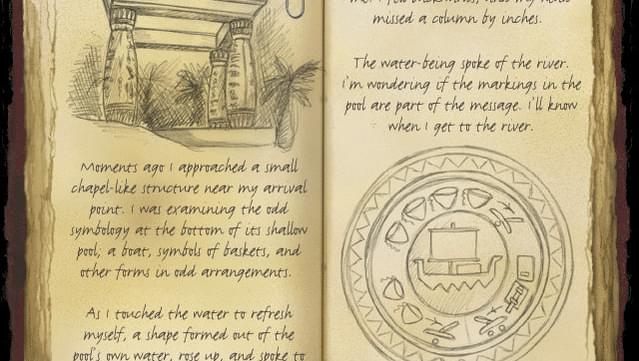 Moments ago I approached a small
chapel-like structure near my arrival
point. I was examining the odd
symbology at the bottom of its shallow
pool; a boat, symbols of baskets, and
other forms in odd arrangements.
As I touched the water to refresh
myself, a shape formed out of the
pool's own water, rose up, and spoke to
missed a column by inches.
The water-being spoke of the river.
I'm wondering if the markings in the
pool are part of the message. I'll know
when I get to the river.